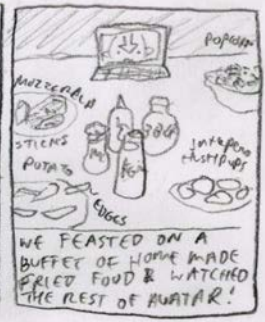 POPCORN
MOZZERELA
STICKS
BBQ
JALAPENO
HUSHPUPS
POTATO
WEDGES
WE FEASTED ON A
BUFFET OF HOME MADE
FRIED FOOD & WATCHED
THE REST OF AVATAR!